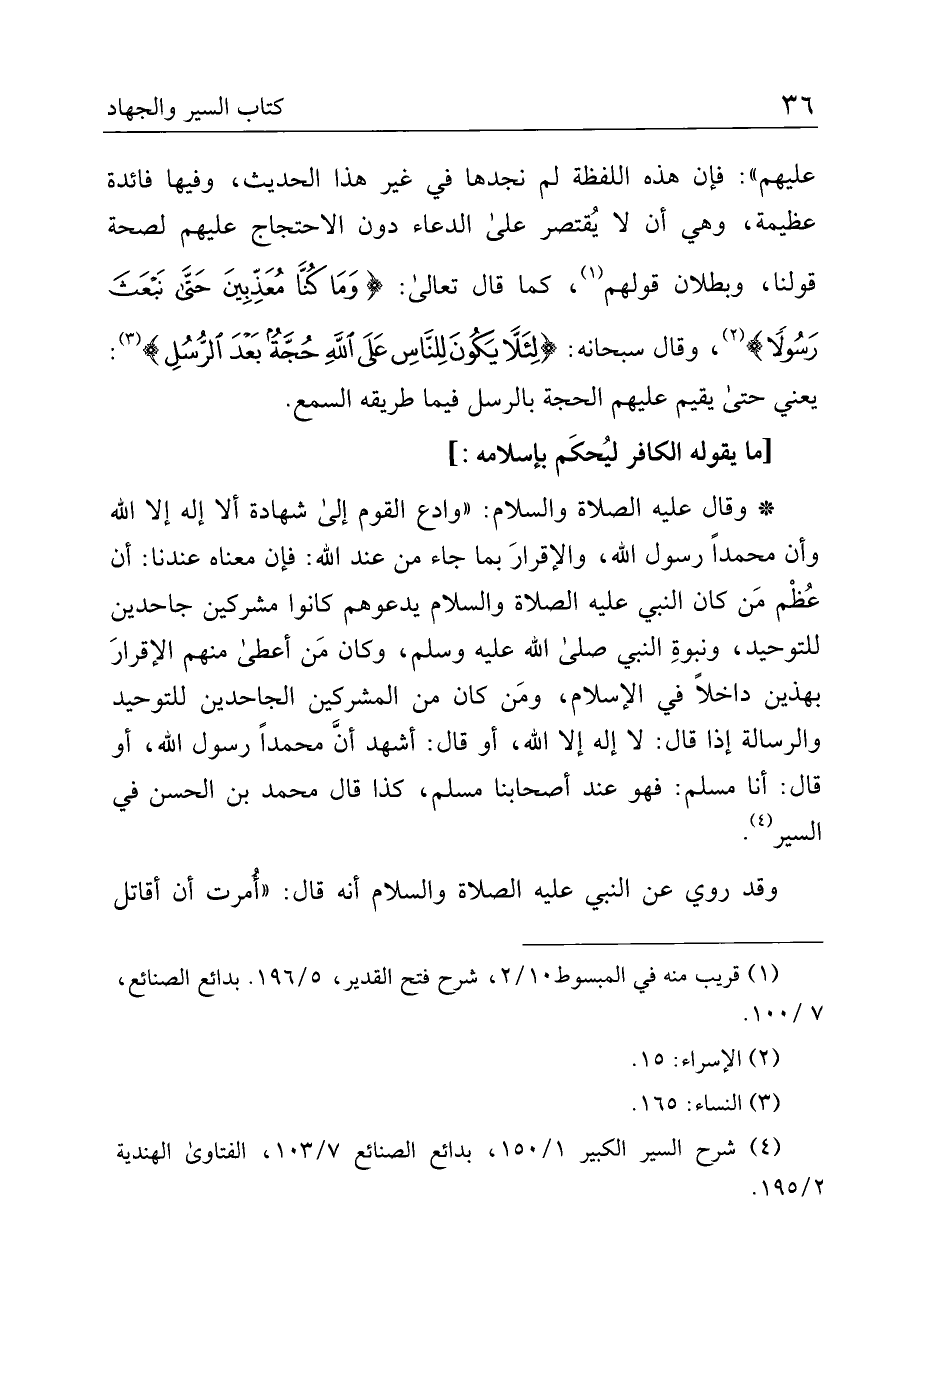 ٣٦ كتاب السير والجهاد
عليهم»: فإن هذه اللفظة لم نجدها في غير هذا الحديث، وفيها فائدة
عظيمة، وهي أن لا يُقتصر علىٰ الدعاء دون الاحتجاج عليهم لصحة
قولنا، وبطلان قولهم(١)، كما قال تعالىٰ: ﴿وَمَا كُنَّا مُعَذِّبِينَ حَتَّىٰ نَبْعَثَ
رَسُولًا﴾(٢)، وقال سبحانه: ﴿لِئَلَّا يَكُونَ لِلنَّاسِ عَلَى ٱللَّهِ حُجَّةٌۢ بَعْدَ ٱلرُّسُلِ﴾(٣):
يعني حتىٰ يقيم عليهم الحجة بالرسل فيما طريقه السمع.
[ما يقوله الكافر ليُحكَم بإسلامه :]
* وقال عليه الصلاة والسلام: «وادع القوم إلىٰ شهادة ألا إله إلا الله
وأن محمداً رسول الله، والإقرارَ بما جاء من عند الله: فإن معناه عندنا: أن
عُظْم مَن كان النبي عليه الصلاة والسلام يدعوهم كانوا مشركين جاحدين
للتوحيد، ونبوةِ النبي صلىٰ الله عليه وسلم، وكان مَن أعطىٰ منهم الإقرارَ
بهذين داخلاً في الإسلام، ومَن كان من المشركين الجاحدين للتوحيد
والرسالة إذا قال: لا إله إلا الله، أو قال: أشهد أنَّ محمداً رسول الله، أو
قال: أنا مسلم: فهو عند أصحابنا مسلم، كذا قال محمد بن الحسن في
السير(٤).
وقد روي عن النبي عليه الصلاة والسلام أنه قال: «أُمرت أن أقاتل
(١) قريب منه في المبسوط ٢/١٠، شرح فتح القدير، ١٩٦/٥. بدائع الصنائع،
٧ /١٠٠.
(٢) الإسراء: ١٥.
(٣) النساء: ١٦٥.
(٤) شرح السير الكبير ١٥٠/١، بدائع الصنائع ١٠٣/٧، الفتاوىٰ الهندية
١٩٥/٢.